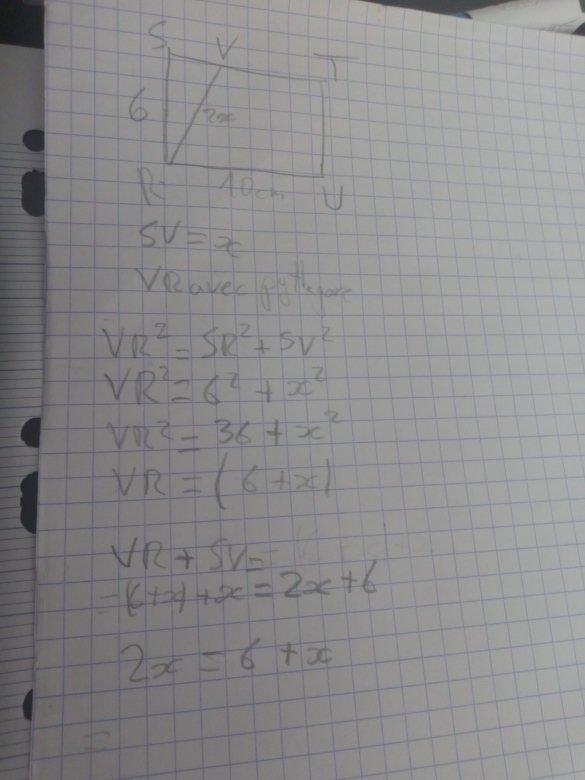 S V T
6 2x
R 10cm U
SV = x
VR avec pythagore
VR² = SR² + SV²
VR² = 6² + x²
VR² = 36 + x²
VR = (6 + x)
VR + SV =
(6+x) + x = 2x + 6
2x = 6 + x
=